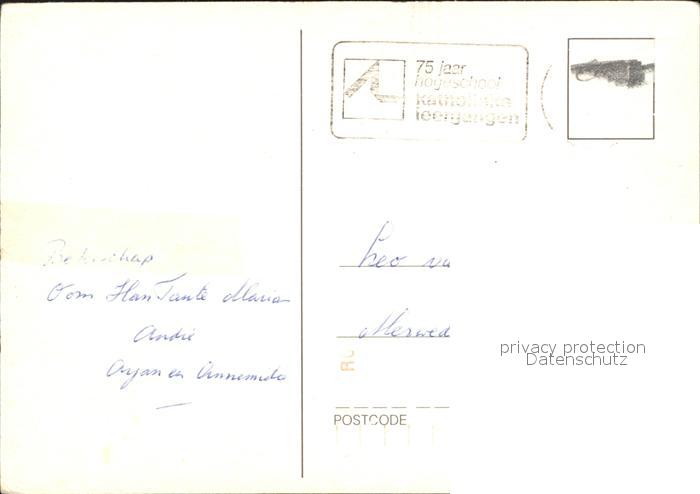 Beterschap
Oom Han Tante Maria
André
Arjan en Annemieke
75 jaar
hogeschool
katholieke
leergangen
Leo va
Merwed
RU
privacy protection
Datenschutz
POSTCODE